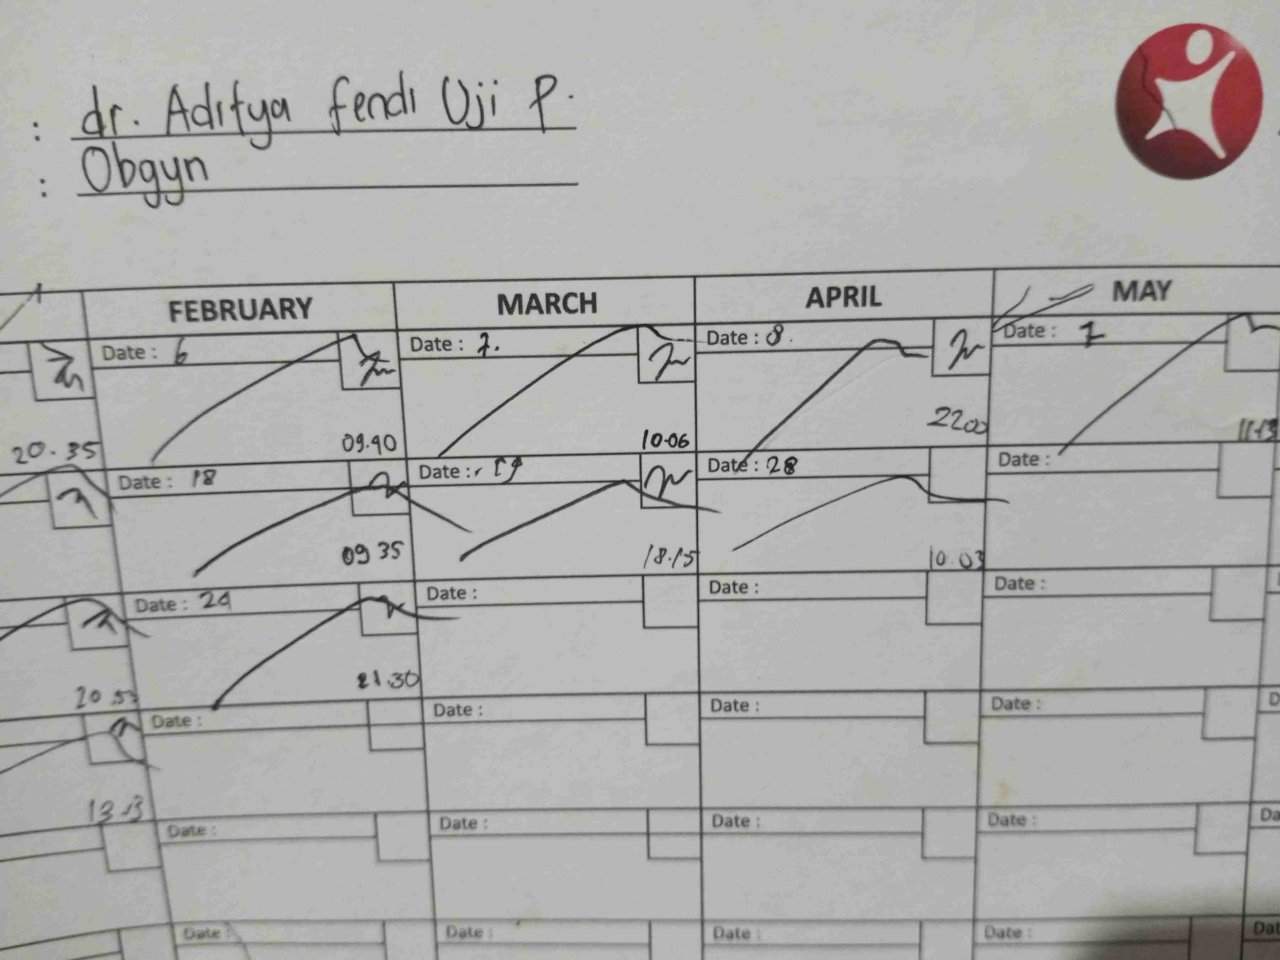 : dr. Aditya fendi Uji P.
: Obgyn
FEBRUARY MARCH APRIL MAY
Date : 6 Date : 7. Date : 8. Date : 1
20.35 09.40 10.06 2200 11.13
Date : 18 Date : 19 Date : 28 Date :
09 35 18.15 10.03
Date : 24 Date : Date : Date :
20.53 21.30
Date : Date : Date : Date : D
13.13
Date : Date : Date : Date : Da
Date : Date : Date : Date : Dat